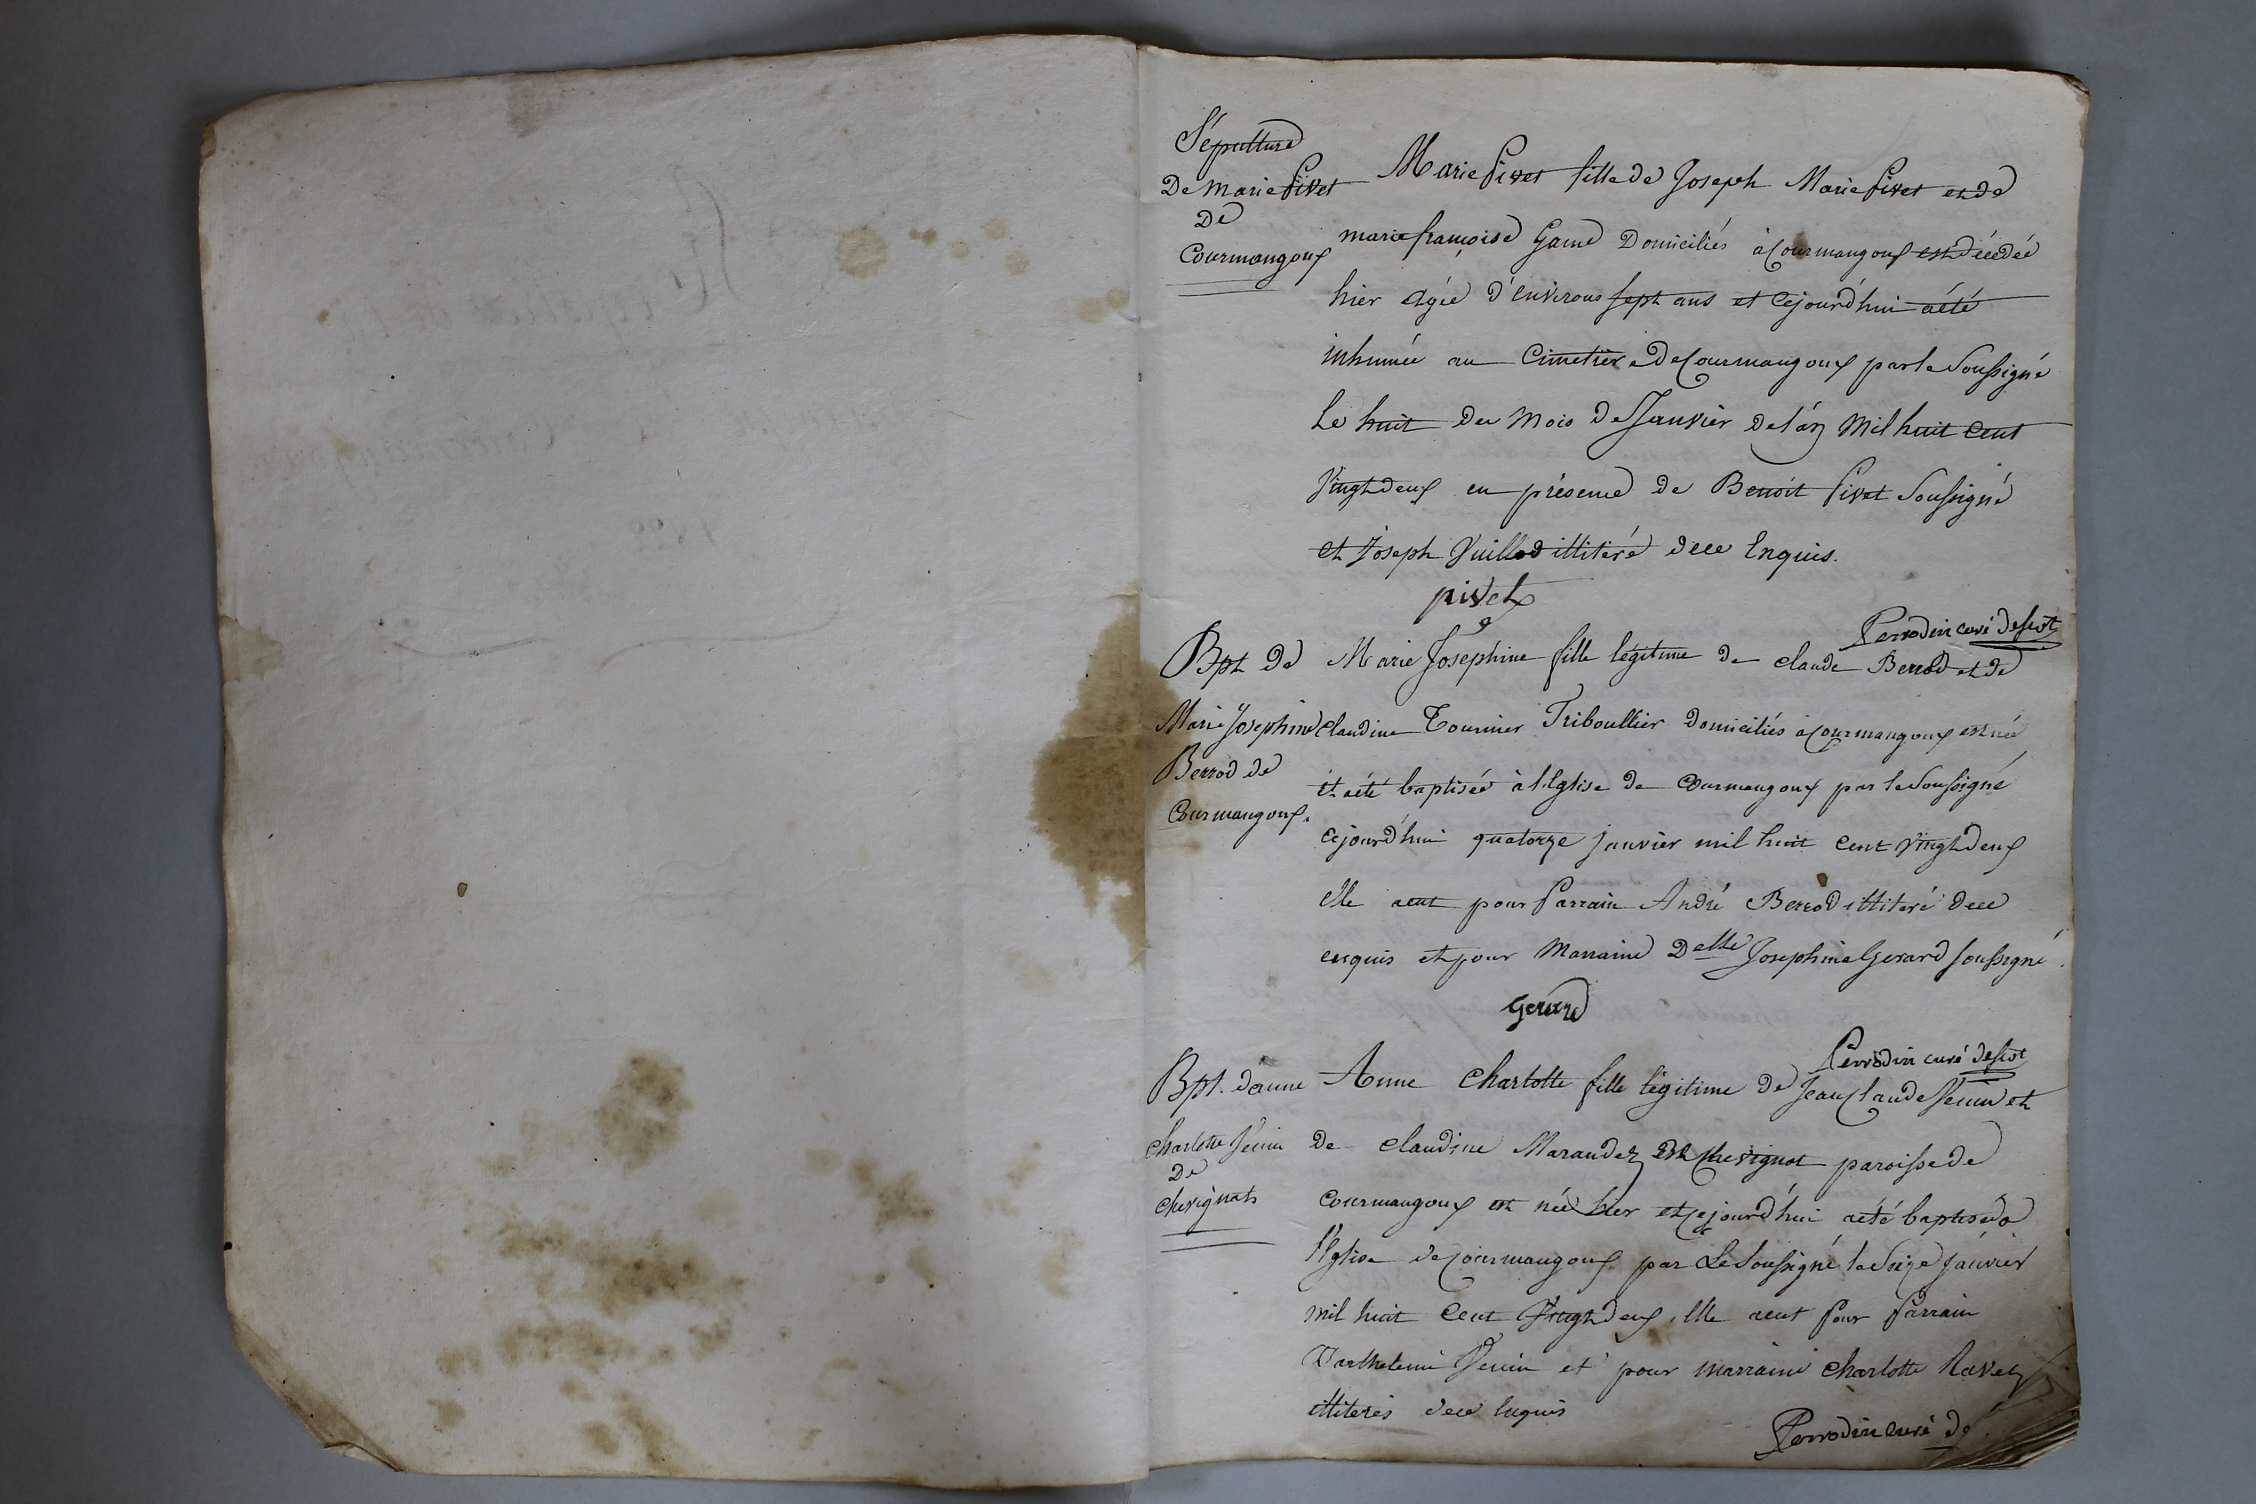 Sépulture
De marie Pivet
De
Courmangoux
Marie Pivet fille de Joseph Marie Pivet et de
marie françoise Game Domiciliés à Courmangoux est décédée
hier agée d'environs sept ans et cejourd'hui a été
inhumée au Cimetière de Courmangoux par le Soussigné
Le huit du Mois de Janvier de l'an Mil huit Cent
Vingt deux en présence de Benoit Pivet Soussigné
et Joseph Vuillod illiteré de ce Enquis.
pivet
Perrodin curé
Bpt de
Marie Josephine
Berrod de
Courmangoux.
Marie Josephine fille légitime de claude Berrod et de
claudine Tournier Triboullier domiciliés à Courmangoux est née
et a été baptisée à l'Eglise de Courmangoux par le Soussigné
cejourd'hui quatorze janvier mil huit Cent Vingt deux
elle a eut pour Parrain André Berrod illiteré de ce
enquis et pour Marraine Delle Josephine Gerard soussigné.
Gerard
Perrodin curé
Bpt. d'anne
charlotte
De
chevignat
Anne Charlotte fille légitime de Jean Claude et
de claudine paroisse de
Courmangoux est née hier et cejourd'hui a été baptisée à
l'Eglise de Courmangoux par Le Soussigné le Seize Janvier
mil huit Cent Vingt deux, elle a eut Pour Parrain
Barthelemi et pour marraine charlotte
illiterés de ce Enquis
Perrodin curé de